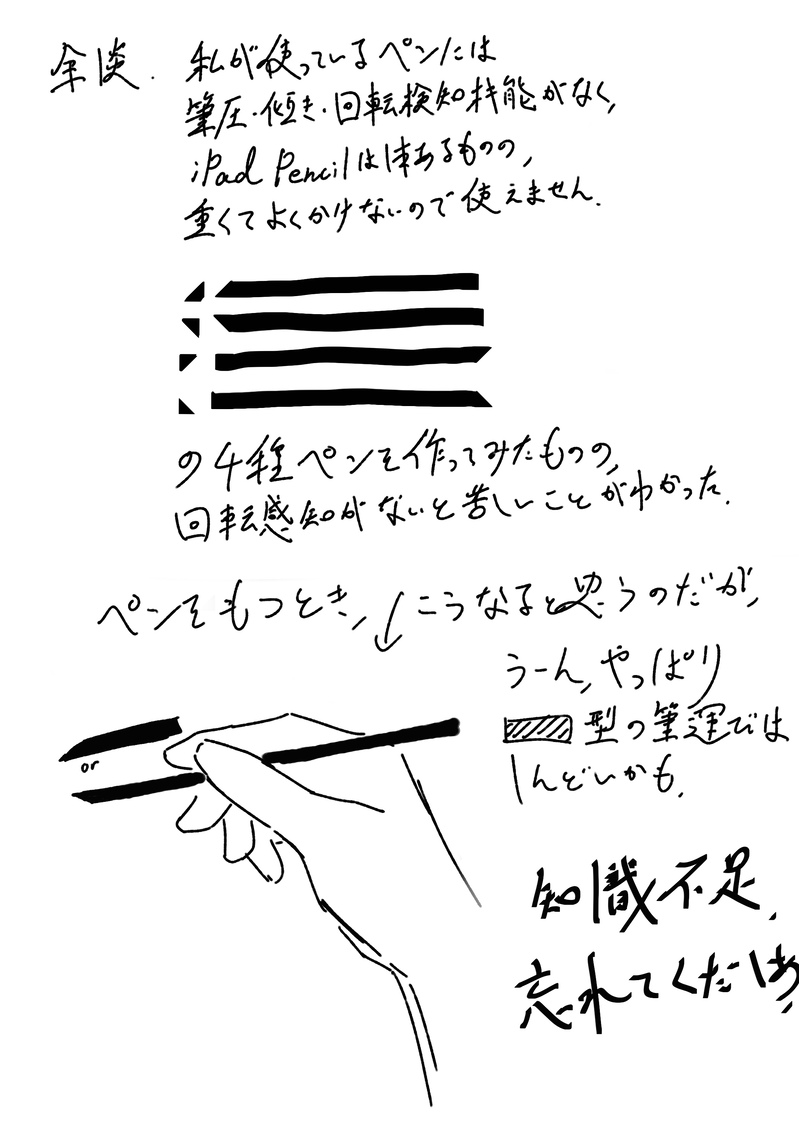 余談.
私が使っているペンには
筆圧・傾き・回転検知機能がなく,
iPad Pencilは1本あるものの,
重くてよくかけないので使えません.
の4種ペンを作ってみたものの,
回転感知がないと苦しいことがわかった.
ペンをもつとき, ↓こうなると思うのだが,
うーん, やっぱり
型の筆運びでは
しんどいかも.
or
知識不足.
忘れてくだは